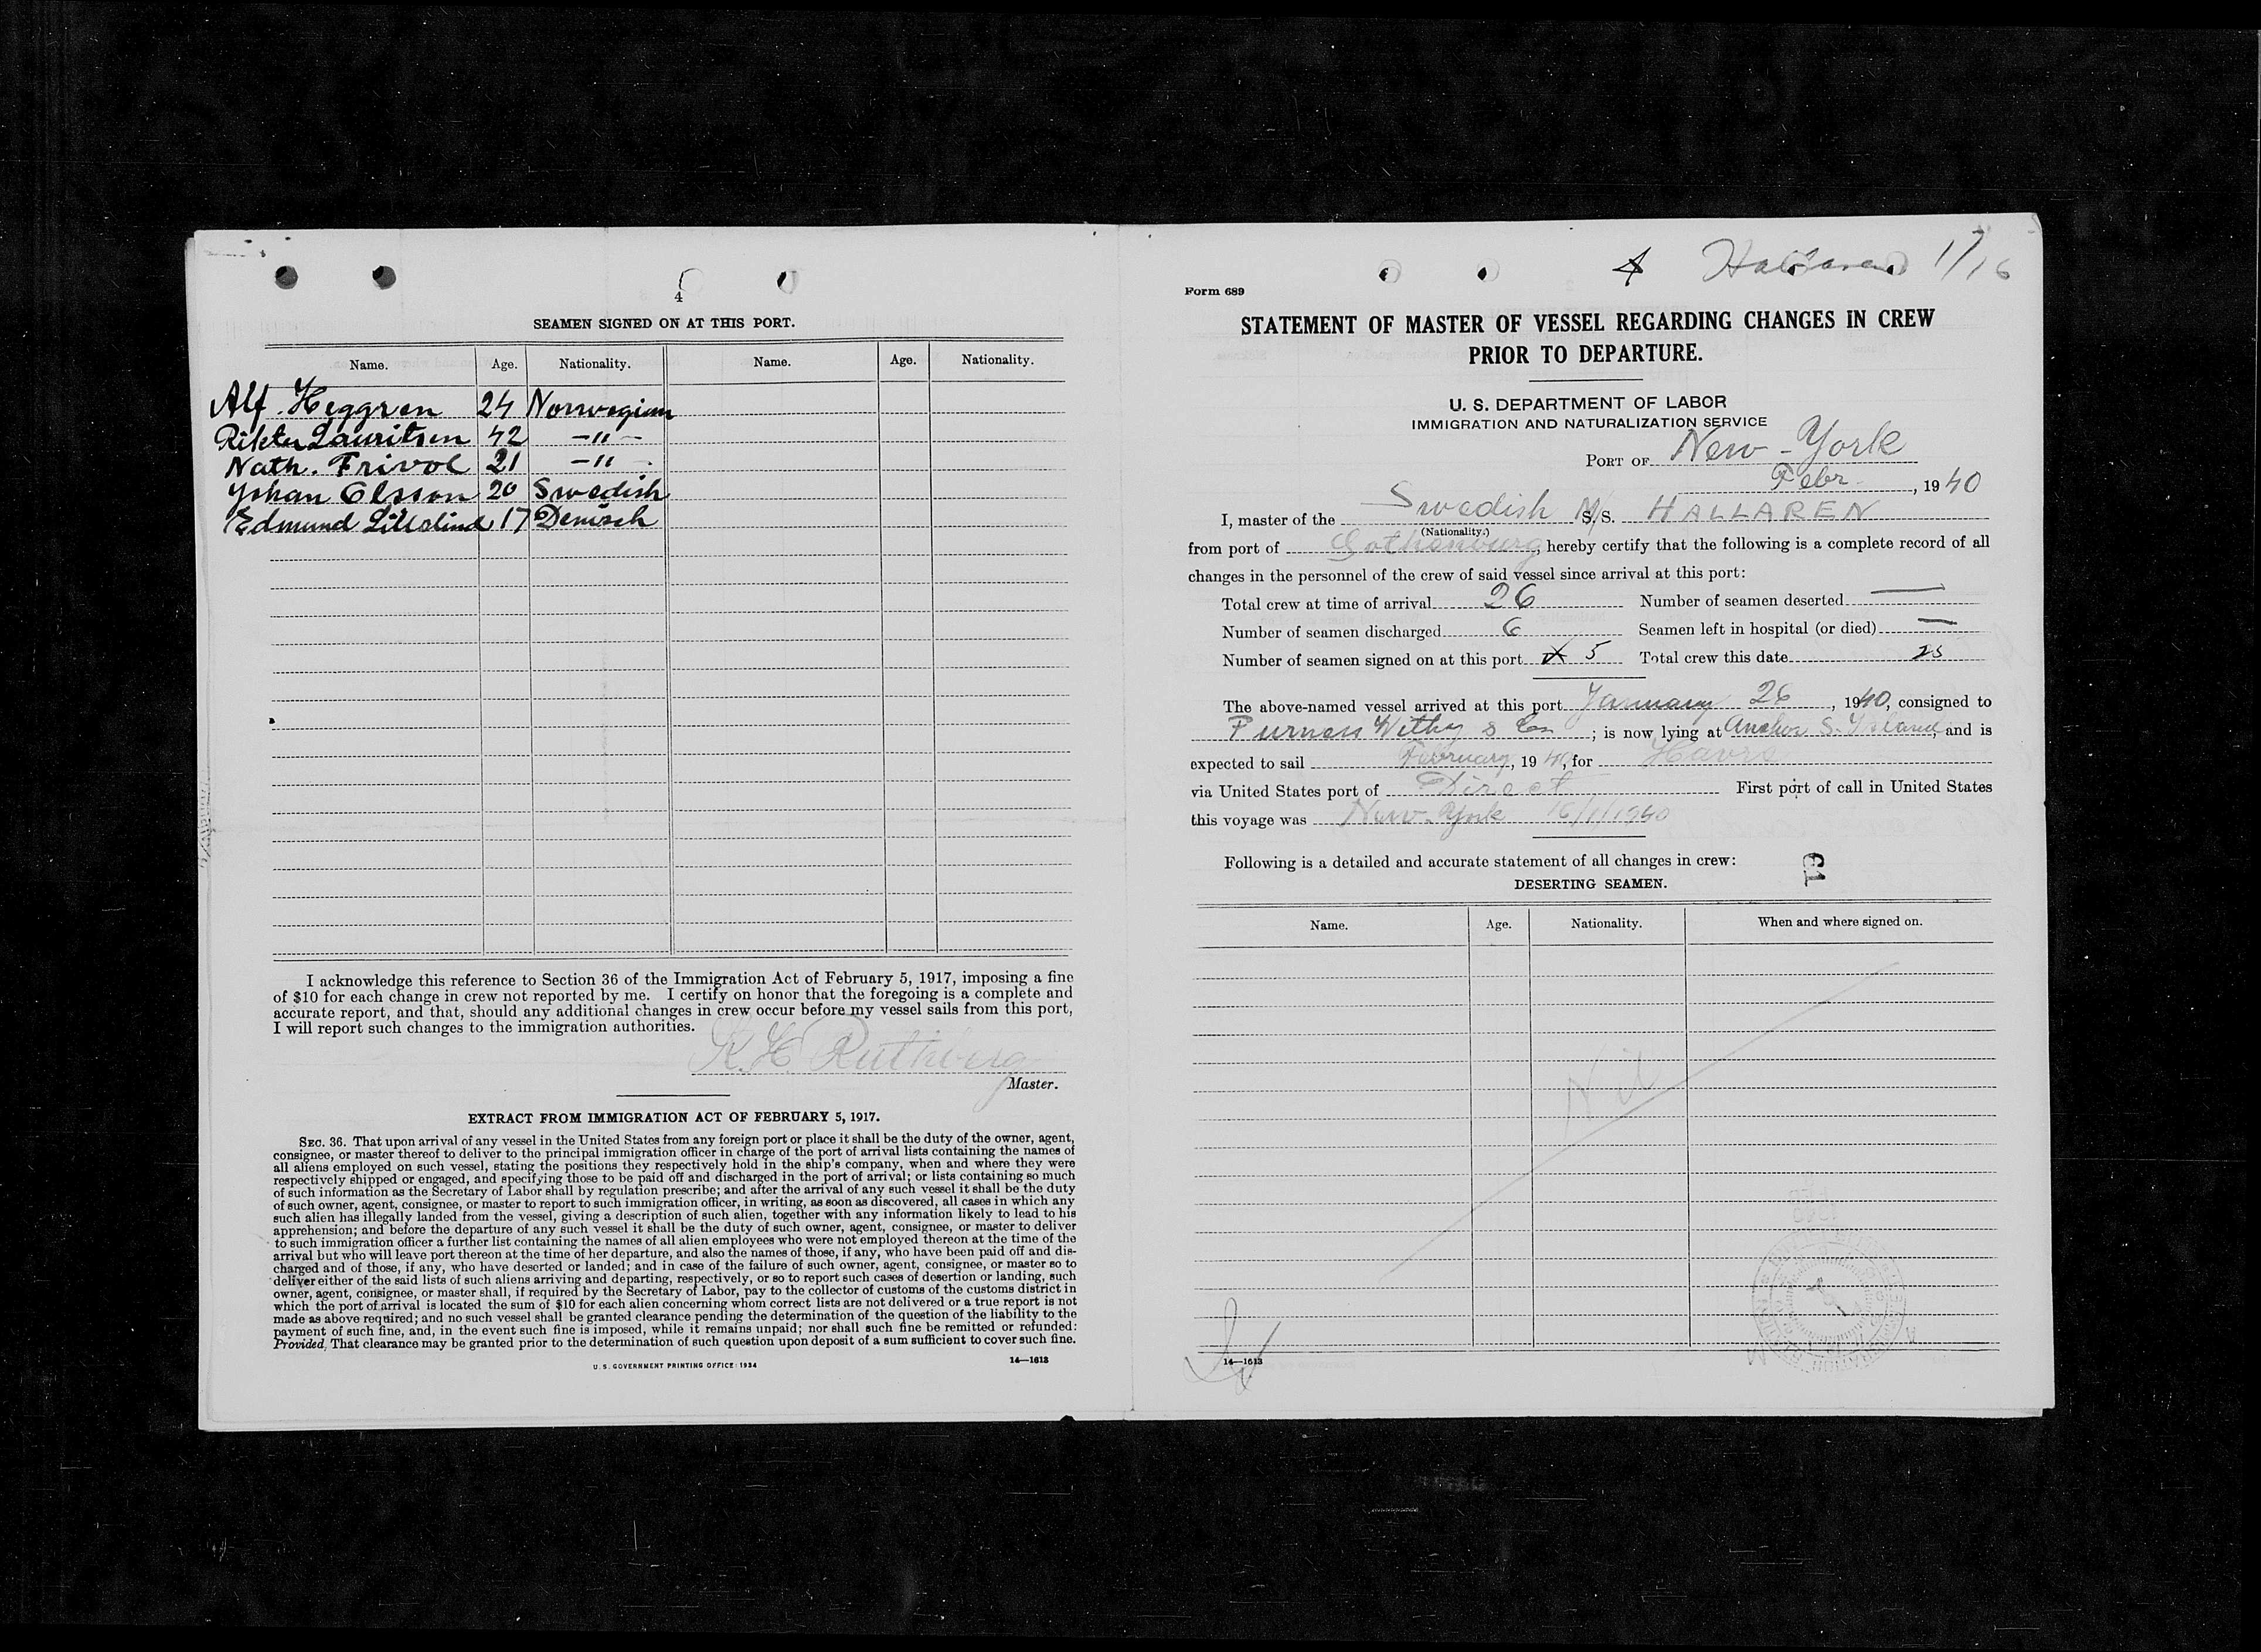 4
SEAMEN SIGNED ON AT THIS PORT.
Name. Age. Nationality. Name. Age. Nationality.
Alf. Heggren 24 Norwegian
Lauritsen 42 -"-
Nath. Frivol 21 -"-
Johan Olsson 20 Swedish
Edmund 17 Denisch
I acknowledge this reference to Section 36 of the Immigration Act of February 5, 1917, imposing a fine
of $10 for each change in crew not reported by me. I certify on honor that the foregoing is a complete and
accurate report, and that, should any additional changes in crew occur before my vessel sails from this port,
I will report such changes to the immigration authorities.
K. H.
Master.
EXTRACT FROM IMMIGRATION ACT OF FEBRUARY 5, 1917.
SEC. 36. That upon arrival of any vessel in the United States from any foreign port or place it shall be the duty of the owner, agent,
consignee, or master thereof to deliver to the principal immigration officer in charge of the port of arrival lists containing the names of
all aliens employed on such vessel, stating the positions they respectively hold in the ship's company, when and where they were
respectively shipped or engaged, and specifying those to be paid off and discharged in the port of arrival; or lists containing so much
of such information as the Secretary of Labor shall by regulation prescribe; and after the arrival of any such vessel it shall be the duty
of such owner, agent, consignee, or master to report to such immigration officer, in writing, as soon as discovered, all cases in which any
such alien has illegally landed from the vessel, giving a description of such alien, together with any information likely to lead to his
apprehension; and before the departure of any such vessel it shall be the duty of such owner, agent, consignee, or master to deliver
to such immigration officer a further list containing the names of all alien employees who were not employed thereon at the time of the
arrival but who will leave port thereon at the time of her departure, and also the names of those, if any, who have been paid off and dis-
charged and of those, if any, who have deserted or landed; and in case of the failure of such owner, agent, consignee, or master so to
deliver either of the said lists of such aliens arriving and departing, respectively, or so to report such cases of desertion or landing, such
owner, agent, consignee, or master shall, if required by the Secretary of Labor, pay to the collector of customs of the customs district in
which the port of arrival is located the sum of $10 for each alien concerning whom correct lists are not delivered or a true report is not
made as above required; and no such vessel shall be granted clearance pending the determination of the question of the liability to the
payment of such fine, and, in the event such fine is imposed, while it remains unpaid; nor shall such fine be remitted or refunded:
Provided, That clearance may be granted prior to the determination of such question upon deposit of a sum sufficient to cover such fine.
U. S. GOVERNMENT PRINTING OFFICE: 1934 14—1613
4 Hallaren 1/16
Form 689
STATEMENT OF MASTER OF VESSEL REGARDING CHANGES IN CREW
PRIOR TO DEPARTURE.
U. S. DEPARTMENT OF LABOR
IMMIGRATION AND NATURALIZATION SERVICE
PORT OF New-York
Febr., 1940
I, master of the Swedish M/S. HALLAREN
(Nationality.)
from port of Gothenburg, hereby certify that the following is a complete record of all
changes in the personnel of the crew of said vessel since arrival at this port:
Total crew at time of arrival 26 Number of seamen deserted —
Number of seamen discharged 6 Seamen left in hospital (or died) —
Number of seamen signed on at this port 5 Total crew this date 25
The above-named vessel arrived at this port January 26, 1940, consigned to
Furness Withy & Co; is now lying at Anchor S. Island, and is
expected to sail February, 1940, for Havre
via United States port of Direct First port of call in United States
this voyage was New-York 16/1/1940
Following is a detailed and accurate statement of all changes in crew:
DESERTING SEAMEN.
Name. Age. Nationality. When and where signed on.
Nil
14—1613